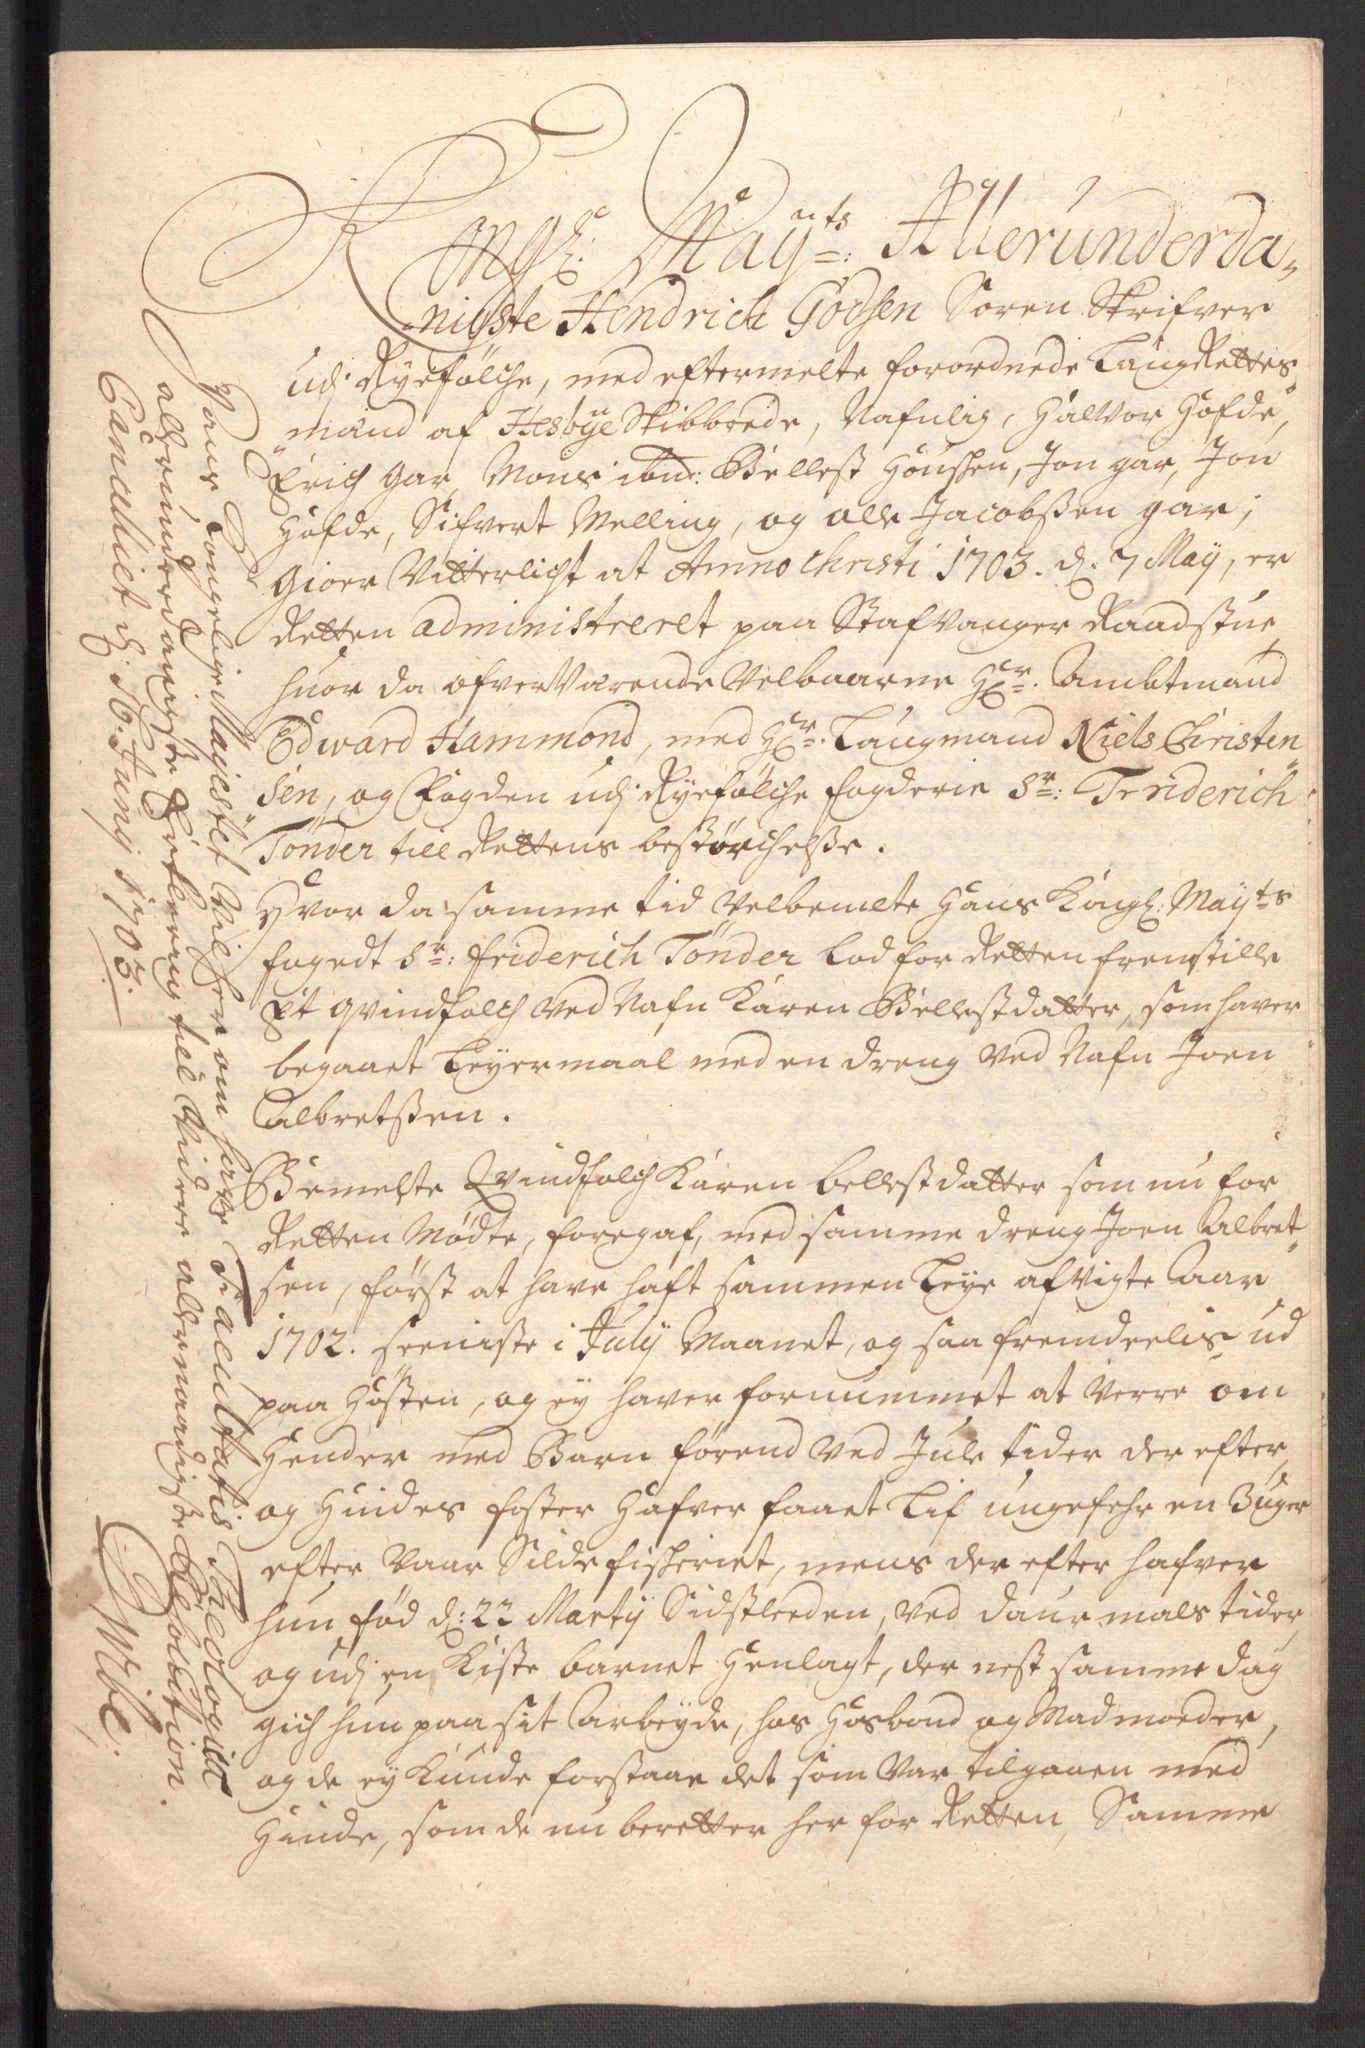 Kongl: Mayts: Allerunderda-
nigste Hendrich Godsen Soren Skrifver
udj Ryefølche, med eftermelte forordnede LaugRettes
mænd af Hesbye Skibbrede, Nafnlig, Halvor Hofde,
Erich Gar, Mons ibm: Bellest Houshen, Jon gar, Jon
Hofde, Sifvert Melling, og olle Jacobssen gar,
Gioer Vitterligt at Anno Christi 1703. d: 7 May, er
Retten administreret paa Stafvanger Raadstue,
huor da ofverVærende Velbaarne Hr: Ambtmand
Edward Hammond, med Hr: Laugmand Niels Christen
sen, og Fogden udj Ryefølche fogderie Sr: Friderich
Tønder till Rettens bestørchelsse.
Hvor da samme tid Velbemelte Hans Kongl: Mayts
fogedt Sr: Friderich Tønder lod for Retten fremstille
Et qvindfolch ved Nafn Karen Bellestdatter, som haver
begaaet Leyermaal med en dreng ved Nafn Joen
Albretssen.
Bemelte Qvindfolch Karen bellestdatter som nu for
Retten Mødte, foregaf, med samme dreng Joen Albret
sen, først at have haft sammen Leye afvigte Aar
1702. seeniste i July Maanet, og saa fremdeelis ud
paa Høsten, og ey haver fornummet at Verre om
Hender med Barn førend ved Jule tider der efter,
og Hindes foster Hafver faaet Lif ungefehr en 3 uger
efter Vaar Silde fiskeriet, mens der efter hafver
hun fød d: 22 Martij Sidstleeden, ved daurmals tider,
og udj en Kiste barnet Henlagt, der nest samme dag
gich hun paa sit Arbeyde, hos Hosbond og Madmoeder,
og de ey Kunde forstaae det som Var tilgaaen med
Hinde, som de nu beretter her for Retten, Samme
Vaur Kongelige Majestet Vil her om have Facultatis Theologicæ
allerunderdanigste Erklering till Videre allernaadigste Resolution.
Cancelliet d: 16. Junij 1703.
Wibe.